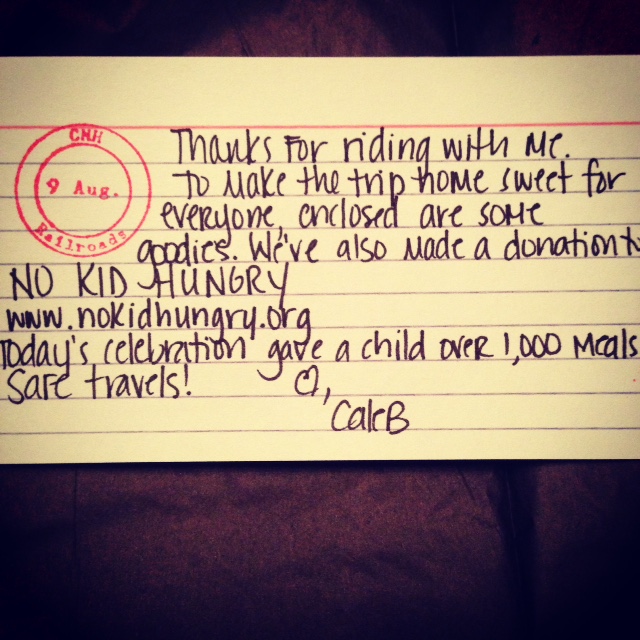 CNH
9 Aug.
Railroads
Thanks For riding with Me.
To Make the trip home sweet for
everyone, enclosed are some
goodies. We've also made a donation to
NO KID HUNGRY
www.nokidhungry.org
Today's celebration gave a child over 1,000 Meals
Safe travels!
♡,
CaleB